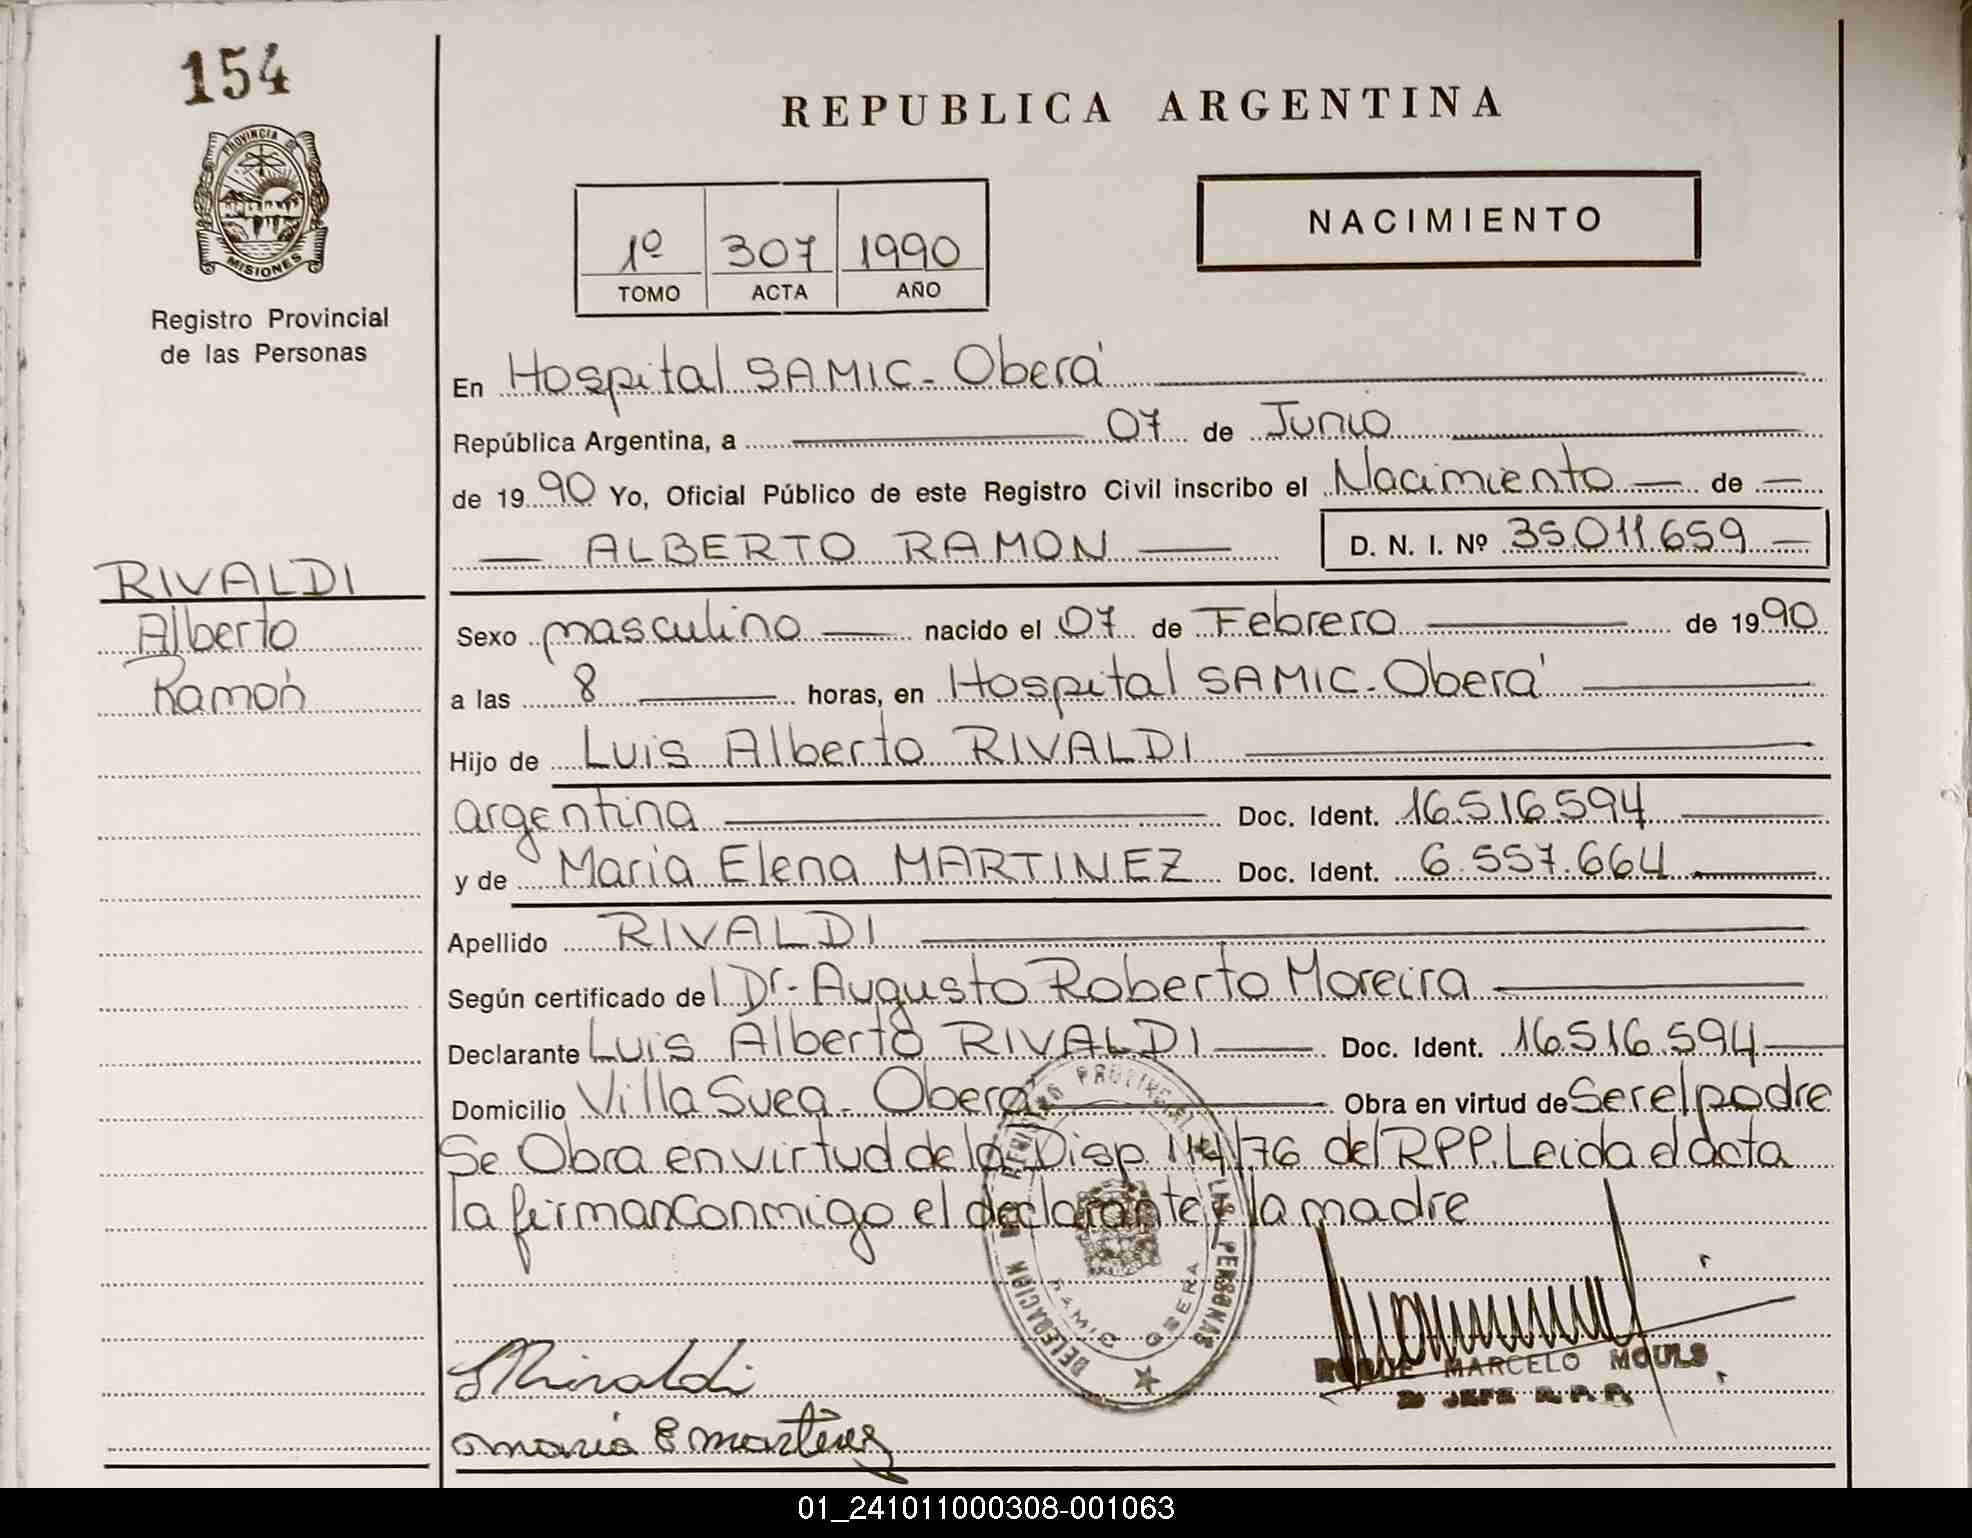 154
PROVINCIA DE
MISIONES
Registro Provincial
de las Personas
RIVALDI
Alberto
Ramón
REPUBLICA ARGENTINA
NACIMIENTO
1º 307 1990
TOMO ACTA AÑO
En Hospital SAMIC - Oberá
República Argentina, a 07 de Junio
de 1990 Yo, Oficial Público de este Registro Civil inscribo el Nacimiento de
ALBERTO RAMON D. N. I. Nº 35.011.659
Sexo masculino nacido el 07 de Febrero de 1990
a las 8 horas, en Hospital SAMIC - Oberá
Hijo de Luis Alberto RIVALDI
argentina Doc. Ident. 16.516.594
y de Maria Elena MARTINEZ Doc. Ident. 6.557.664
Apellido RIVALDI
Según certificado del Dr. Augusto Roberto Moreira
Declarante Luis Alberto RIVALDI Doc. Ident. 16.516.594
Domicilio Villa Svea - Oberá Obra en virtud de Ser el padre
Se Obra en virtud de la Disp. 114/76 del RPP. Leida el acta
la firman conmigo el declarante y la madre
DELEGACION REGISTRO PROVINCIAL DE LAS PERSONAS
SAMIC OBERA
L Rivaldi
maria E martinez
ROQUE MARCELO MOULS
JEFE R.P.P.
01_241011000308-001063